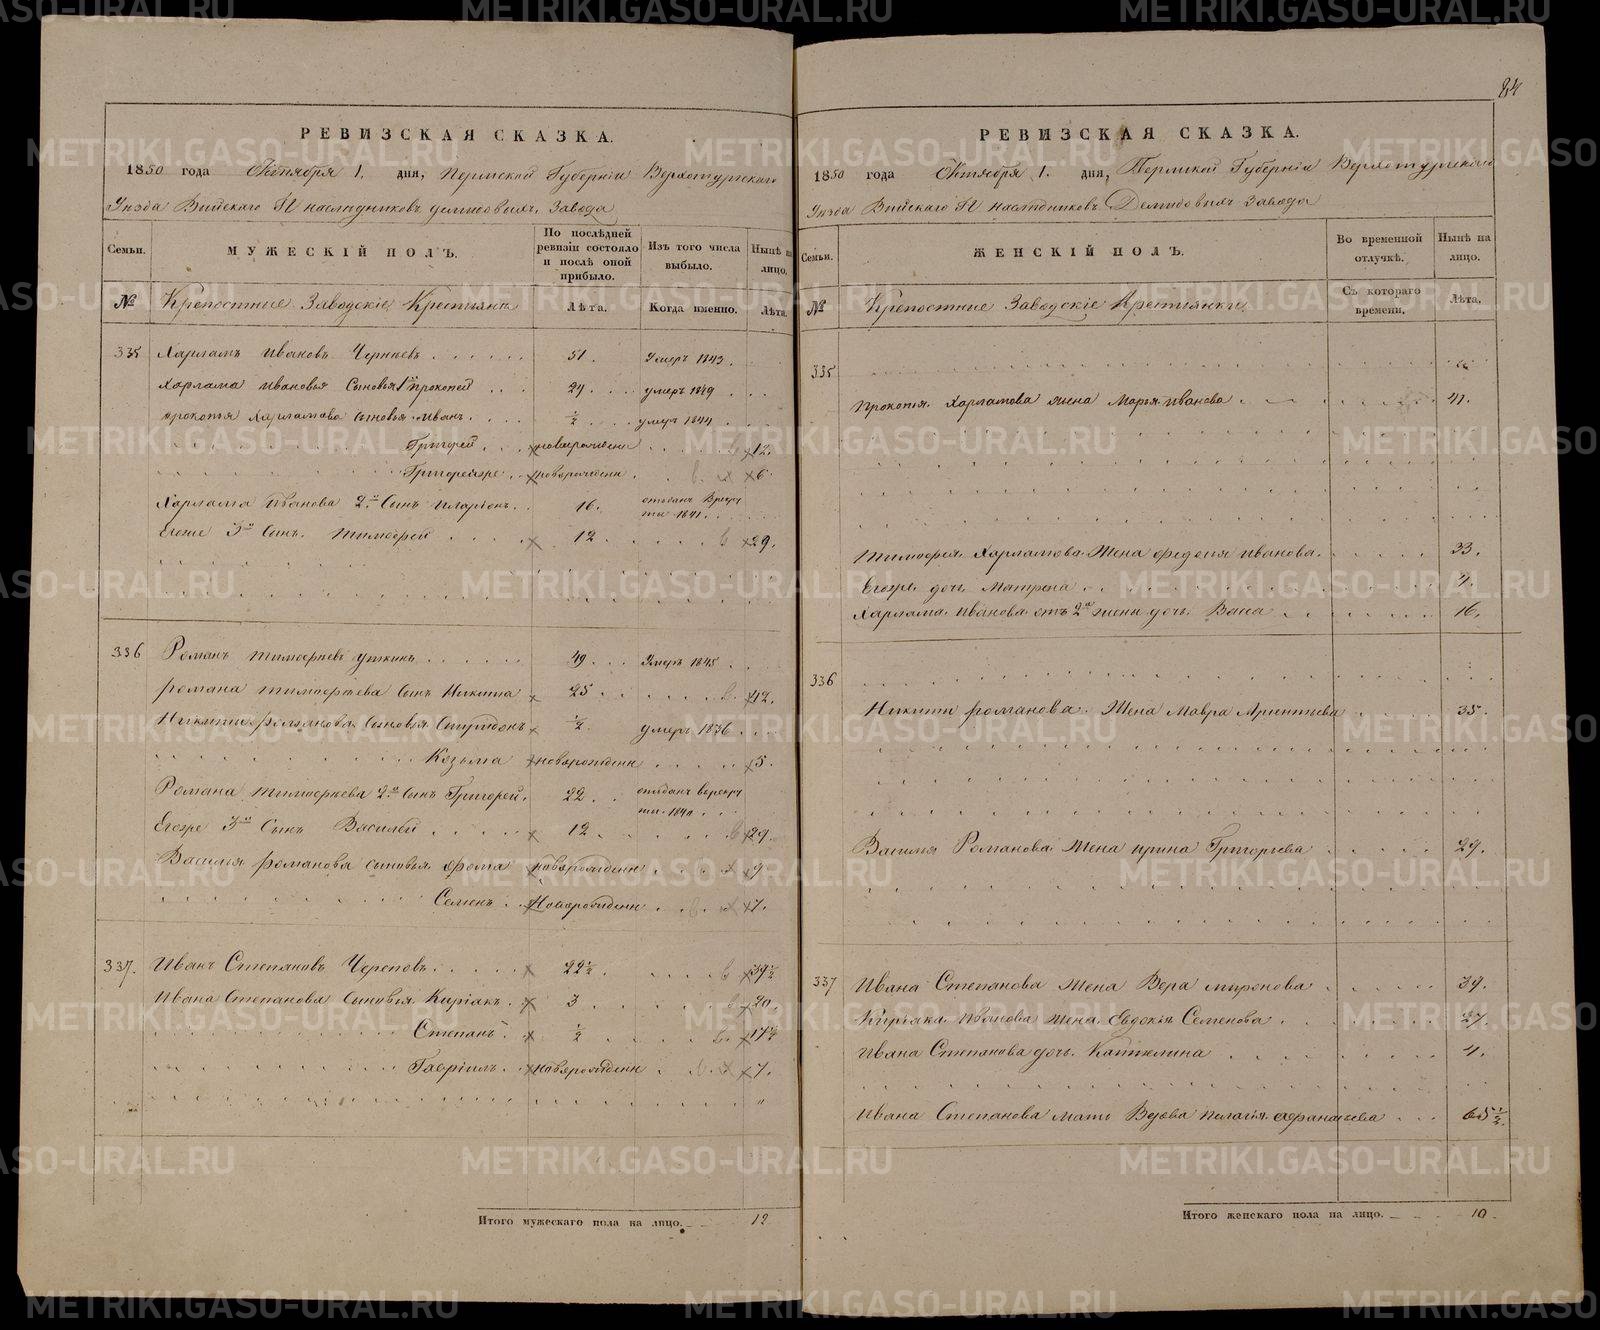 84
РЕВИЗСКАЯ СКАЗКА.
1850 года Октября 1. дня, Пермской Губерніи Верхотурскаго
Уѣзда Выйскаго Г. наслѣдниковъ Демидовыхъ, Завода
Семьи. МУЖЕСКІЙ ПОЛЪ. По послѣдней ревизіи состояло и послѣ оной прибыло. Изъ того числа выбыло. Нынѣ на лицо.
№ Крепостные Заводскіе Крестьяне Лѣта. Когда именно. Лѣта.
335 Харламъ Ивановъ 51. Умеръ 1843.
Харлама Иванова Сыновья 1й Прокопей 24 умеръ 1849
Прокопья Харламова Сыновья Иванъ ½ умеръ 1844
Григорей новорожденн 12.
Григорей же новорожденн 6
Харлама Иванова 2й Сынъ Иларіонъ. 16. отданъ Врекру
ты 1841.
Егоже 3й Сынъ Тимофей 12 29.
336 Романъ Тимофеевъ Уткинъ 49 Умеръ 1845
Романа Тимофеева Сынъ Никита 25 42.
Никиты Романова Сыновья Спиридонъ ½ умеръ 1836
Козьма новорожденн 5.
Романа Тимофеева 2й Сынъ Григорей. 22 отданъ врекру
ты 1840
Егоже 3й Сынъ Василей 12 29.
Василья Романова сыновья Фома новорожденн 9
Семенъ Новорожденн 7.
337. Иванъ Степановъ Череповъ 22½ 39½
Ивана Степанова Сыновья Киріакъ 3 20.
Степанъ ½ 17½
Гавріилъ новорожденн 7.
Итого мужескаго пола на лицо. 12
РЕВИЗСКАЯ СКАЗКА.
1850 года Октября 1. дня, Пермской Губерніи Верхотурскаго
Уѣзда Выйскаго Г. наслѣдниковъ Демидовыхъ Завода
Семьи. ЖЕНСКІЙ ПОЛЪ. Во временной отлучкѣ. Нынѣ на лицо.
№ Крепостные Заводскіе Крестьянки Съ котораго времени. Лѣта.
335
Прокопья Харламова жена Марья Иванова 41.
Тимофея Харламова Жена Федосья Иванова. 33.
Егоже дочь Матрена 4.
Харлама Иванова отъ 2й жены дочь Васса 16.
336
Никиты Романова Жена Мавра 35.
Василья Романова Жена Ирина Григорьева 29.
337 Ивана Степанова Жена Вера Миронова 39.
Киріяка Иванова Жена Евдокія Семенова 27.
Ивана Степанова дочь Кателина 4.
Ивана Степанова мать Вдова Пелагія Афанасьева 65½.
Итого женскаго пола на лицо. 10
METRIKI.GASO-URAL.RU